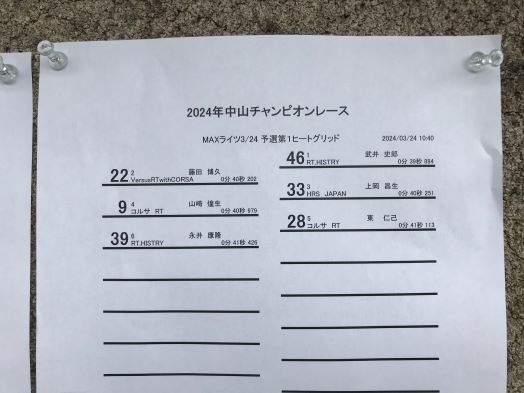 2024年中山チャンピオンレース
MAXライツ3/24 予選第1ヒートグリッド 2024/03/24 10:40
46 1 武井 史郎
RT.HISTRY 0分 39秒 884
22 2 藤田 博久
VersusRTwithCORSA 0分 40秒 202
33 3 上岡 昌生
HRS JAPAN 0分 40秒 251
9 4 山崎 煌生
コルサ RT 0分 40秒 979
28 5 東 仁己
コルサ RT 0分 41秒 113
39 6 永井 康隆
RT.HISTRY 0分 41秒 426